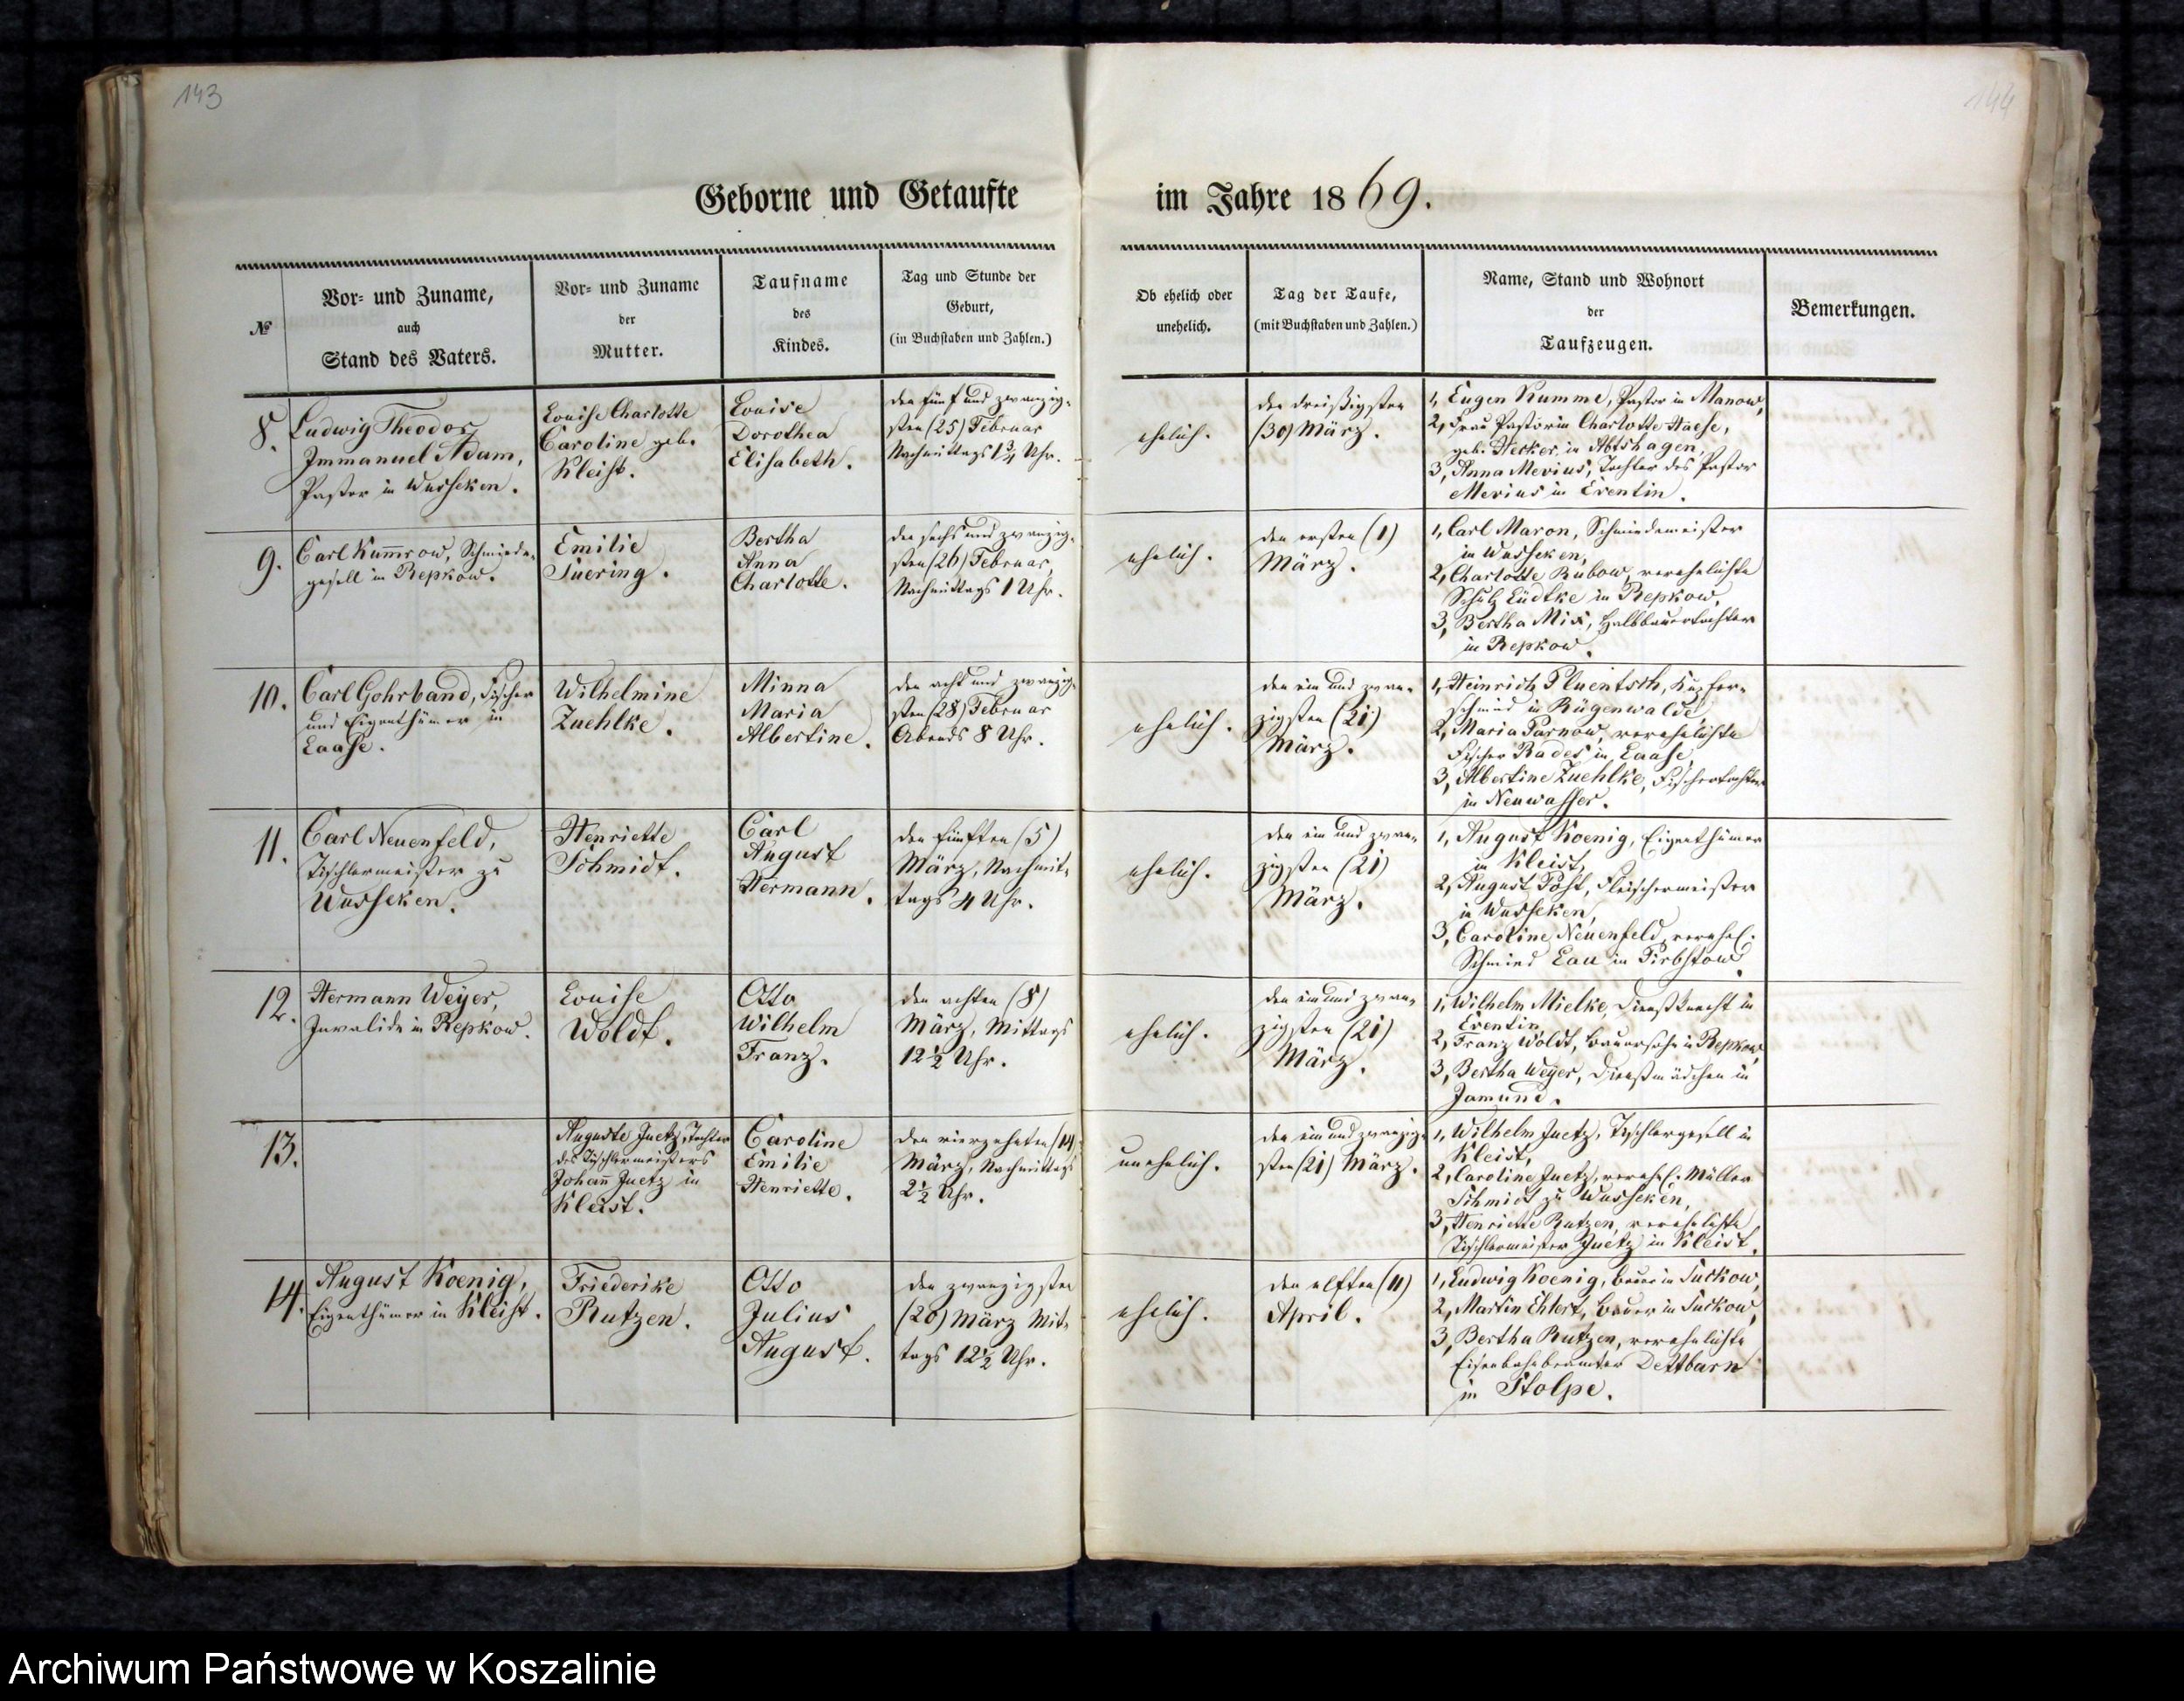 143
144
Geborne und Getaufte im Jahre 1869.
№
Vor- und Zuname,
auch
Stand des Vaters.
Vor- und Zuname
der
Mutter.
Taufname
des
Kindes.
Tag und Stunde der
Geburt,
(in Buchstaben und Zahlen.)
Ob ehelich oder
unehelich.
Tag der Taufe,
(mit Buchstaben und Zahlen.)
Name, Stand und Wohnort
der
Taufzeugen.
Bemerkungen.
8.
Ludwig Theodor
Immanuel Adam,
Pastor in Wusseken.
Louise Charlotte
Caroline geb.
Kleist.
Louise
Dorothea
Elisabeth.
den fünf und zwanzig-
sten (25) Februar
Nachmittags 1¾ Uhr.
ehelich.
den dreißigsten
(30) März.
1, Eugen Kumme, Pastor in Manow,
2, Frau Pastorin Charlotte Haese,
geb. Hecker, in Abtshagen,
3, Anna Mevius, Tochter des Pastor
Mevius in Eventin.
9.
Carl Kumrow, Schmiede-
gesell in Repkow.
Emilie
Suering.
Bertha
Anna
Charlotte.
den sechs und zwanzig-
sten (26) Februar,
Nachmittags 1 Uhr.
ehelich.
den ersten (1)
März.
1, Carl Maron, Schmiedemeister
in Wusseken,
2, Charlotte Rubow, verehelichte
Schulz Lüdtke in Repkow,
3, Bertha Mix, Halbbauertochter
in Repkow.
10.
Carl Gohrband, Fischer
und Eigenthümer in
Laase.
Wilhelmine
Zuehlke.
Minna
Maria
Albertine.
den acht und zwanzig-
sten (28) Februar
Abends 8 Uhr.
ehelich.
den ein und zwan-
zigsten (21)
März.
1, Heinrich Pluentsch, Kupfer-
schmied in Rügenwalde,
2, Maria Parnow, verehelichte
Fischer Rades in Laase,
3, Albertine Zuehlke, Fischertochter
in Neuwasser.
11.
Carl Neuenfeld,
Tischlermeister zu
Wusseken.
Henriette
Schmidt.
Carl
August
Hermann.
den fünften (5)
März, Nachmit-
tags 4 Uhr.
ehelich.
den ein und zwan-
zigsten (21)
März.
1, August Koenig, Eigenthümer
in Kleist,
2, August Post, Fleischermeister
in Wusseken,
3, Caroline Neuenfeld, verehel.
Schmied Lau in Pirbstow.
12.
Hermann Weyer,
Invalide in Repkow.
Louise
Woldt.
Otto
Wilhelm
Franz.
den achten (8)
März, Mittags
12½ Uhr.
ehelich.
den ein und zwan-
zigsten (21)
März.
1, Wilhelm Mielke, Dienstknecht in
Eventin,
2, Franz Woldt, Bauersohn in Repkow,
3, Bertha Weyer, Dienstmädchen in
Jamund.
13.
Auguste Juetz, Tochter
des Tischlermeisters
Johann Juetz in
Kleist.
Caroline
Emilie
Henriette.
den vierzehnten (14)
März, Nachmittags
2½ Uhr.
unehelich.
den ein und zwanzig-
sten (21) März.
1, Wilhelm Juetz, Tischlergesell in
Kleist,
2, Caroline Juetz, verehel. Müller
Schmidt zu Wusseken,
3, Henriette Rutzen, verehelichte
Tischlermeister Juetz in Kleist.
14.
August Koenig,
Eigenthümer in Kleist.
Friederike
Rutzen.
Otto
Julius
August.
den zwanzigsten
(20) März Mit-
tags 12½ Uhr.
ehelich.
den elften (11)
April.
1, Ludwig Koenig, Bauer in Suckow,
2, Martin Ehlert, Bauer in Suckow,
3, Bertha Rutzen, verehelichte
Eisenbahnbeamter Dettbarn
in Stolpe.
Archiwum Państwowe w Koszalinie